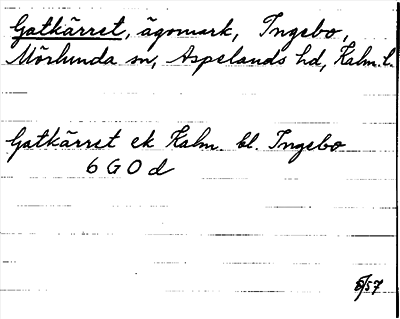 Gatkärret, ägomark, Ingebo,
Mörlunda sn, Aspelands hd, Kalm. l.
Gatkärret ek Kalm. bl. Ingebo
6 G 0 d
8/57